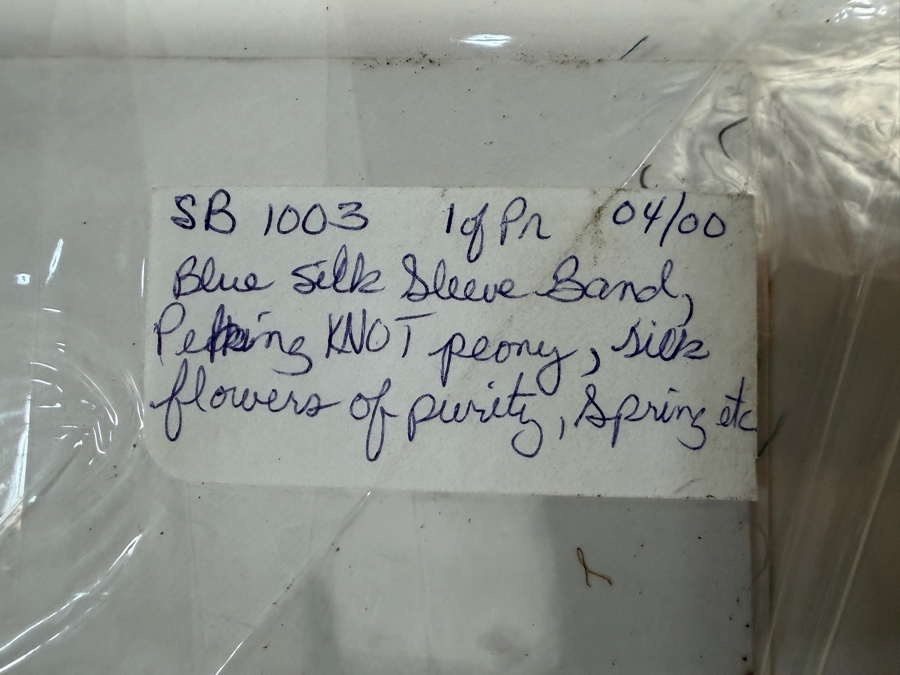 SB 1003 1 of Pr 04/00
Blue Silk Sleeve Band,
Peking KNOT peony, silk
flowers of purity, Spring etc